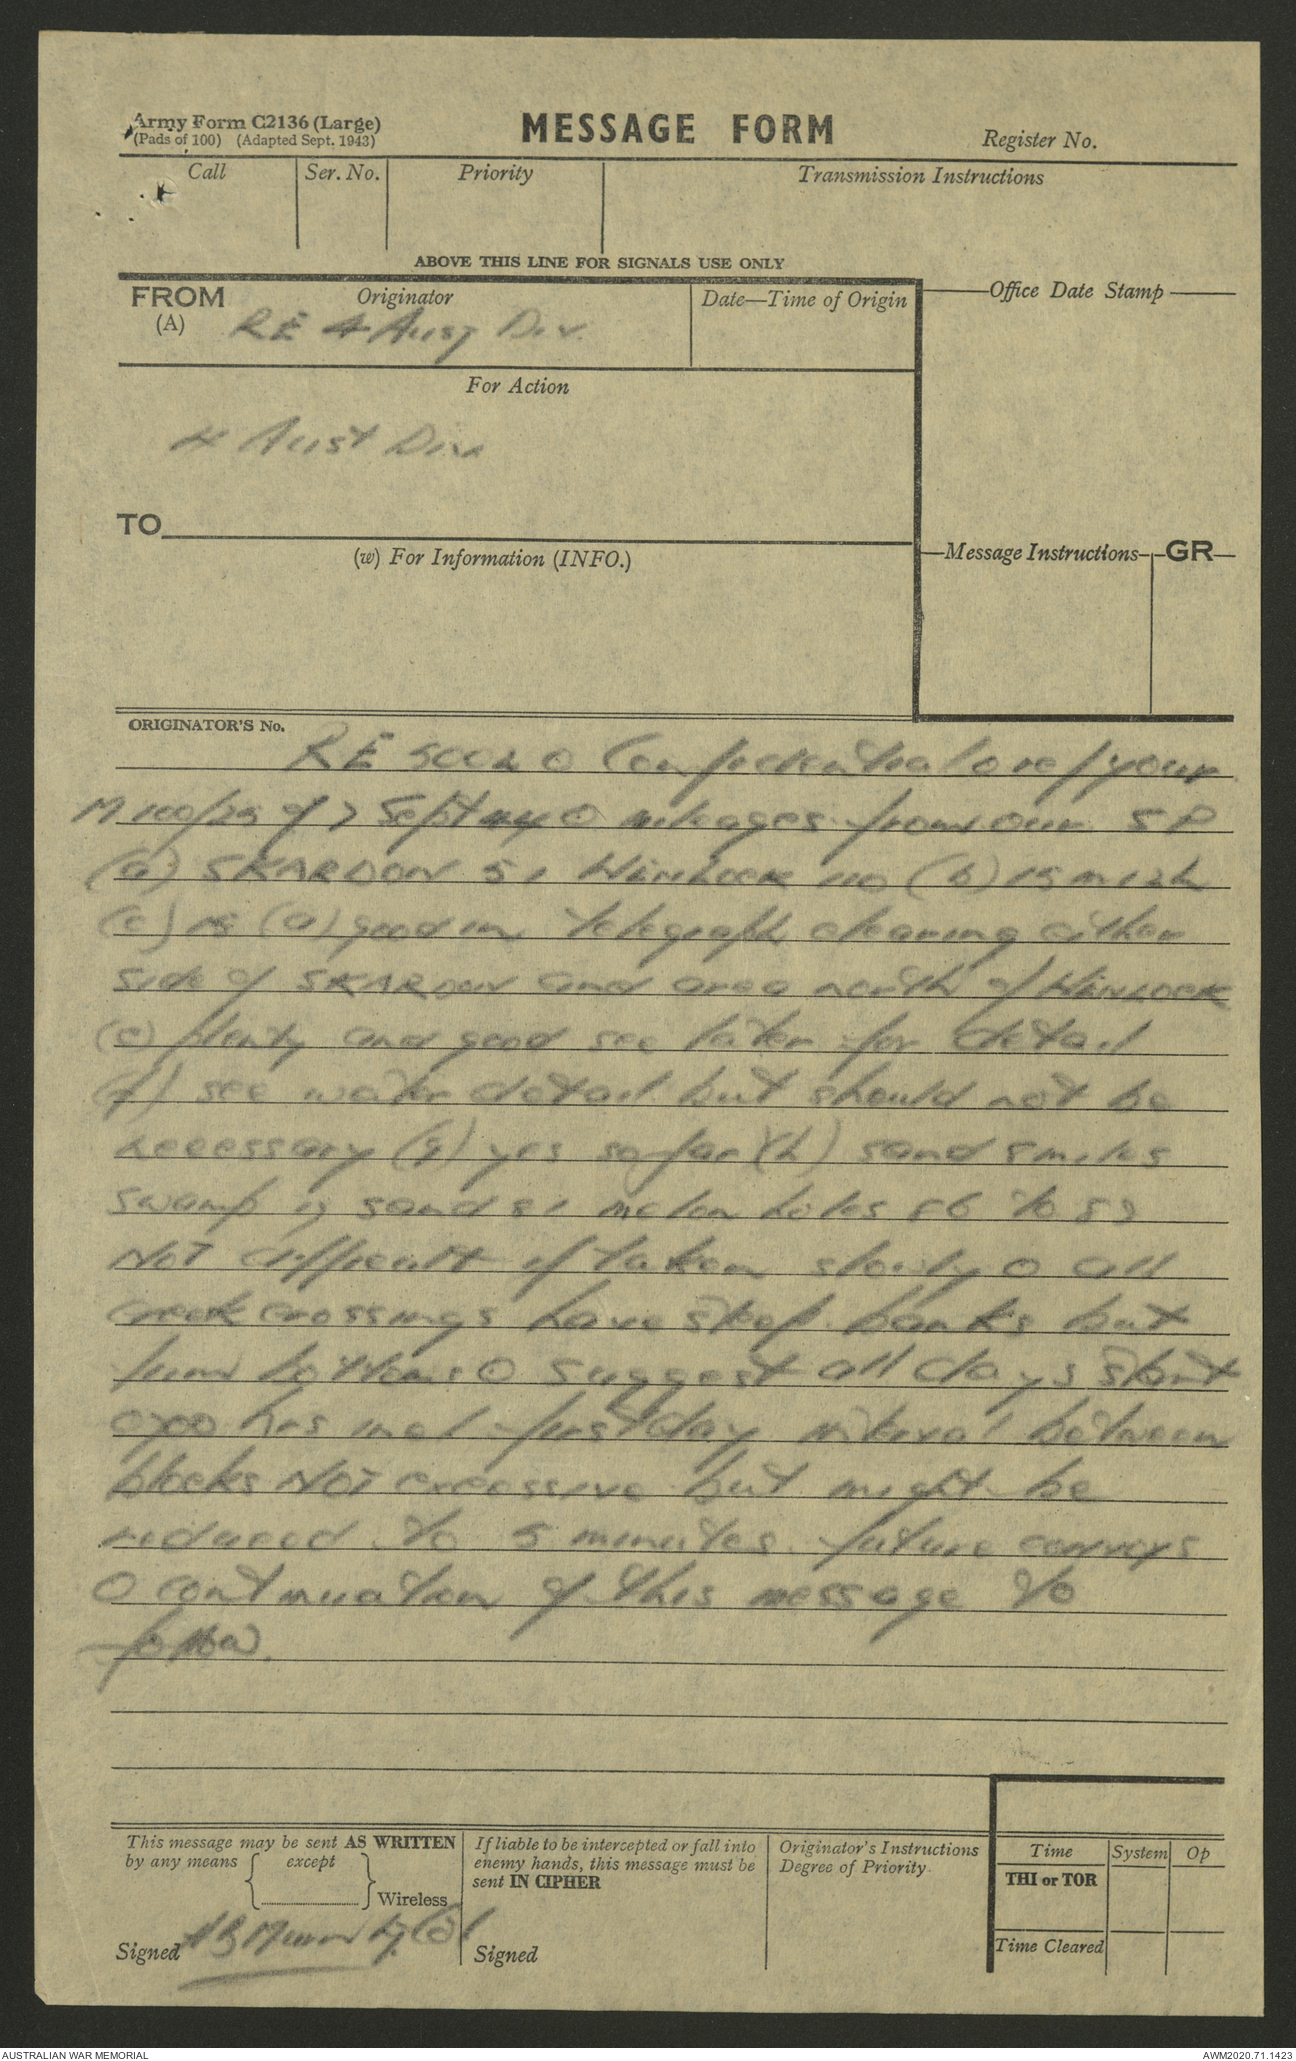 Army Form C2136 (Large)
(Pads of 100) (Adapted Sept. 1943)
MESSAGE FORM
Register No.
Call
Ser. No.
Priority
Transmission Instructions
ABOVE THIS LINE FOR SIGNALS USE ONLY
FROM
(A)
Originator
RE 4 Aust Div.
Date—Time of Origin
Office Date Stamp
For Action
4 Aust Div
TO
(w) For Information (INFO.)
Message Instructions
GR
ORIGINATOR'S No.
RE O Confidential O ref your
of 7 Sept 44 O mileages from our SP
(a) SKARDON 51 110 (b) 15 m i 2 h
(c) (a) good in telegraph clearing either
side of SKARDON and area north of
(e) plenty and good see later for detail
(f) see water detail but should not be
necessary (g) yes so far (h) sand 5 miles
swamp sand 81 melon holes 86 to
NOT difficult if taken slowly O all
creek crossings have steep banks but
firm bottoms O Suggest all days start
0700 hrs incl first day interval between
blocks NOT excessive but might be
reduced to 5 minutes future convoys
O continuation of this message to
follow.
This message may be sent AS WRITTEN
by any means
except
Wireless
Signed
If liable to be intercepted or fall into
enemy hands, this message must be
sent IN CIPHER
Signed
Originator's Instructions
Degree of Priority
Time
System
Op
THI or TOR
Time Cleared
AUSTRALIAN WAR MEMORIAL
AWM2020.71.1423